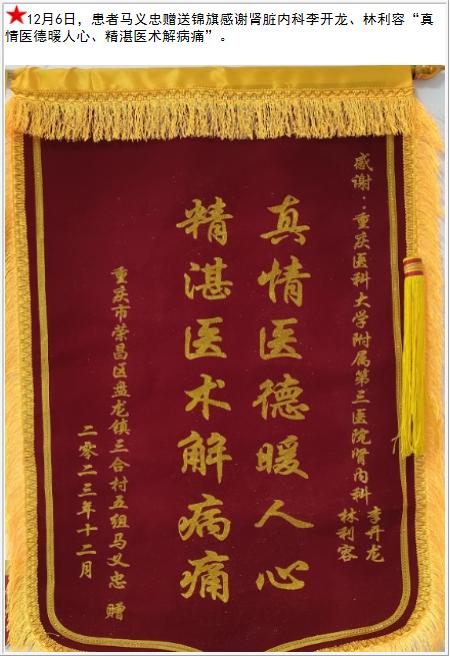 ★12月6日，患者马义忠赠送锦旗感谢肾脏内科李开龙、林利容“真
情医德暖人心、精湛医术解病痛”。
感谢：重庆医科大学附属第三医院肾内科 李开龙
林利容
真情医德暖人心
精湛医术解病痛
重庆市荣昌区盘龙镇三合村五组马义忠 赠
二零二三年十二月